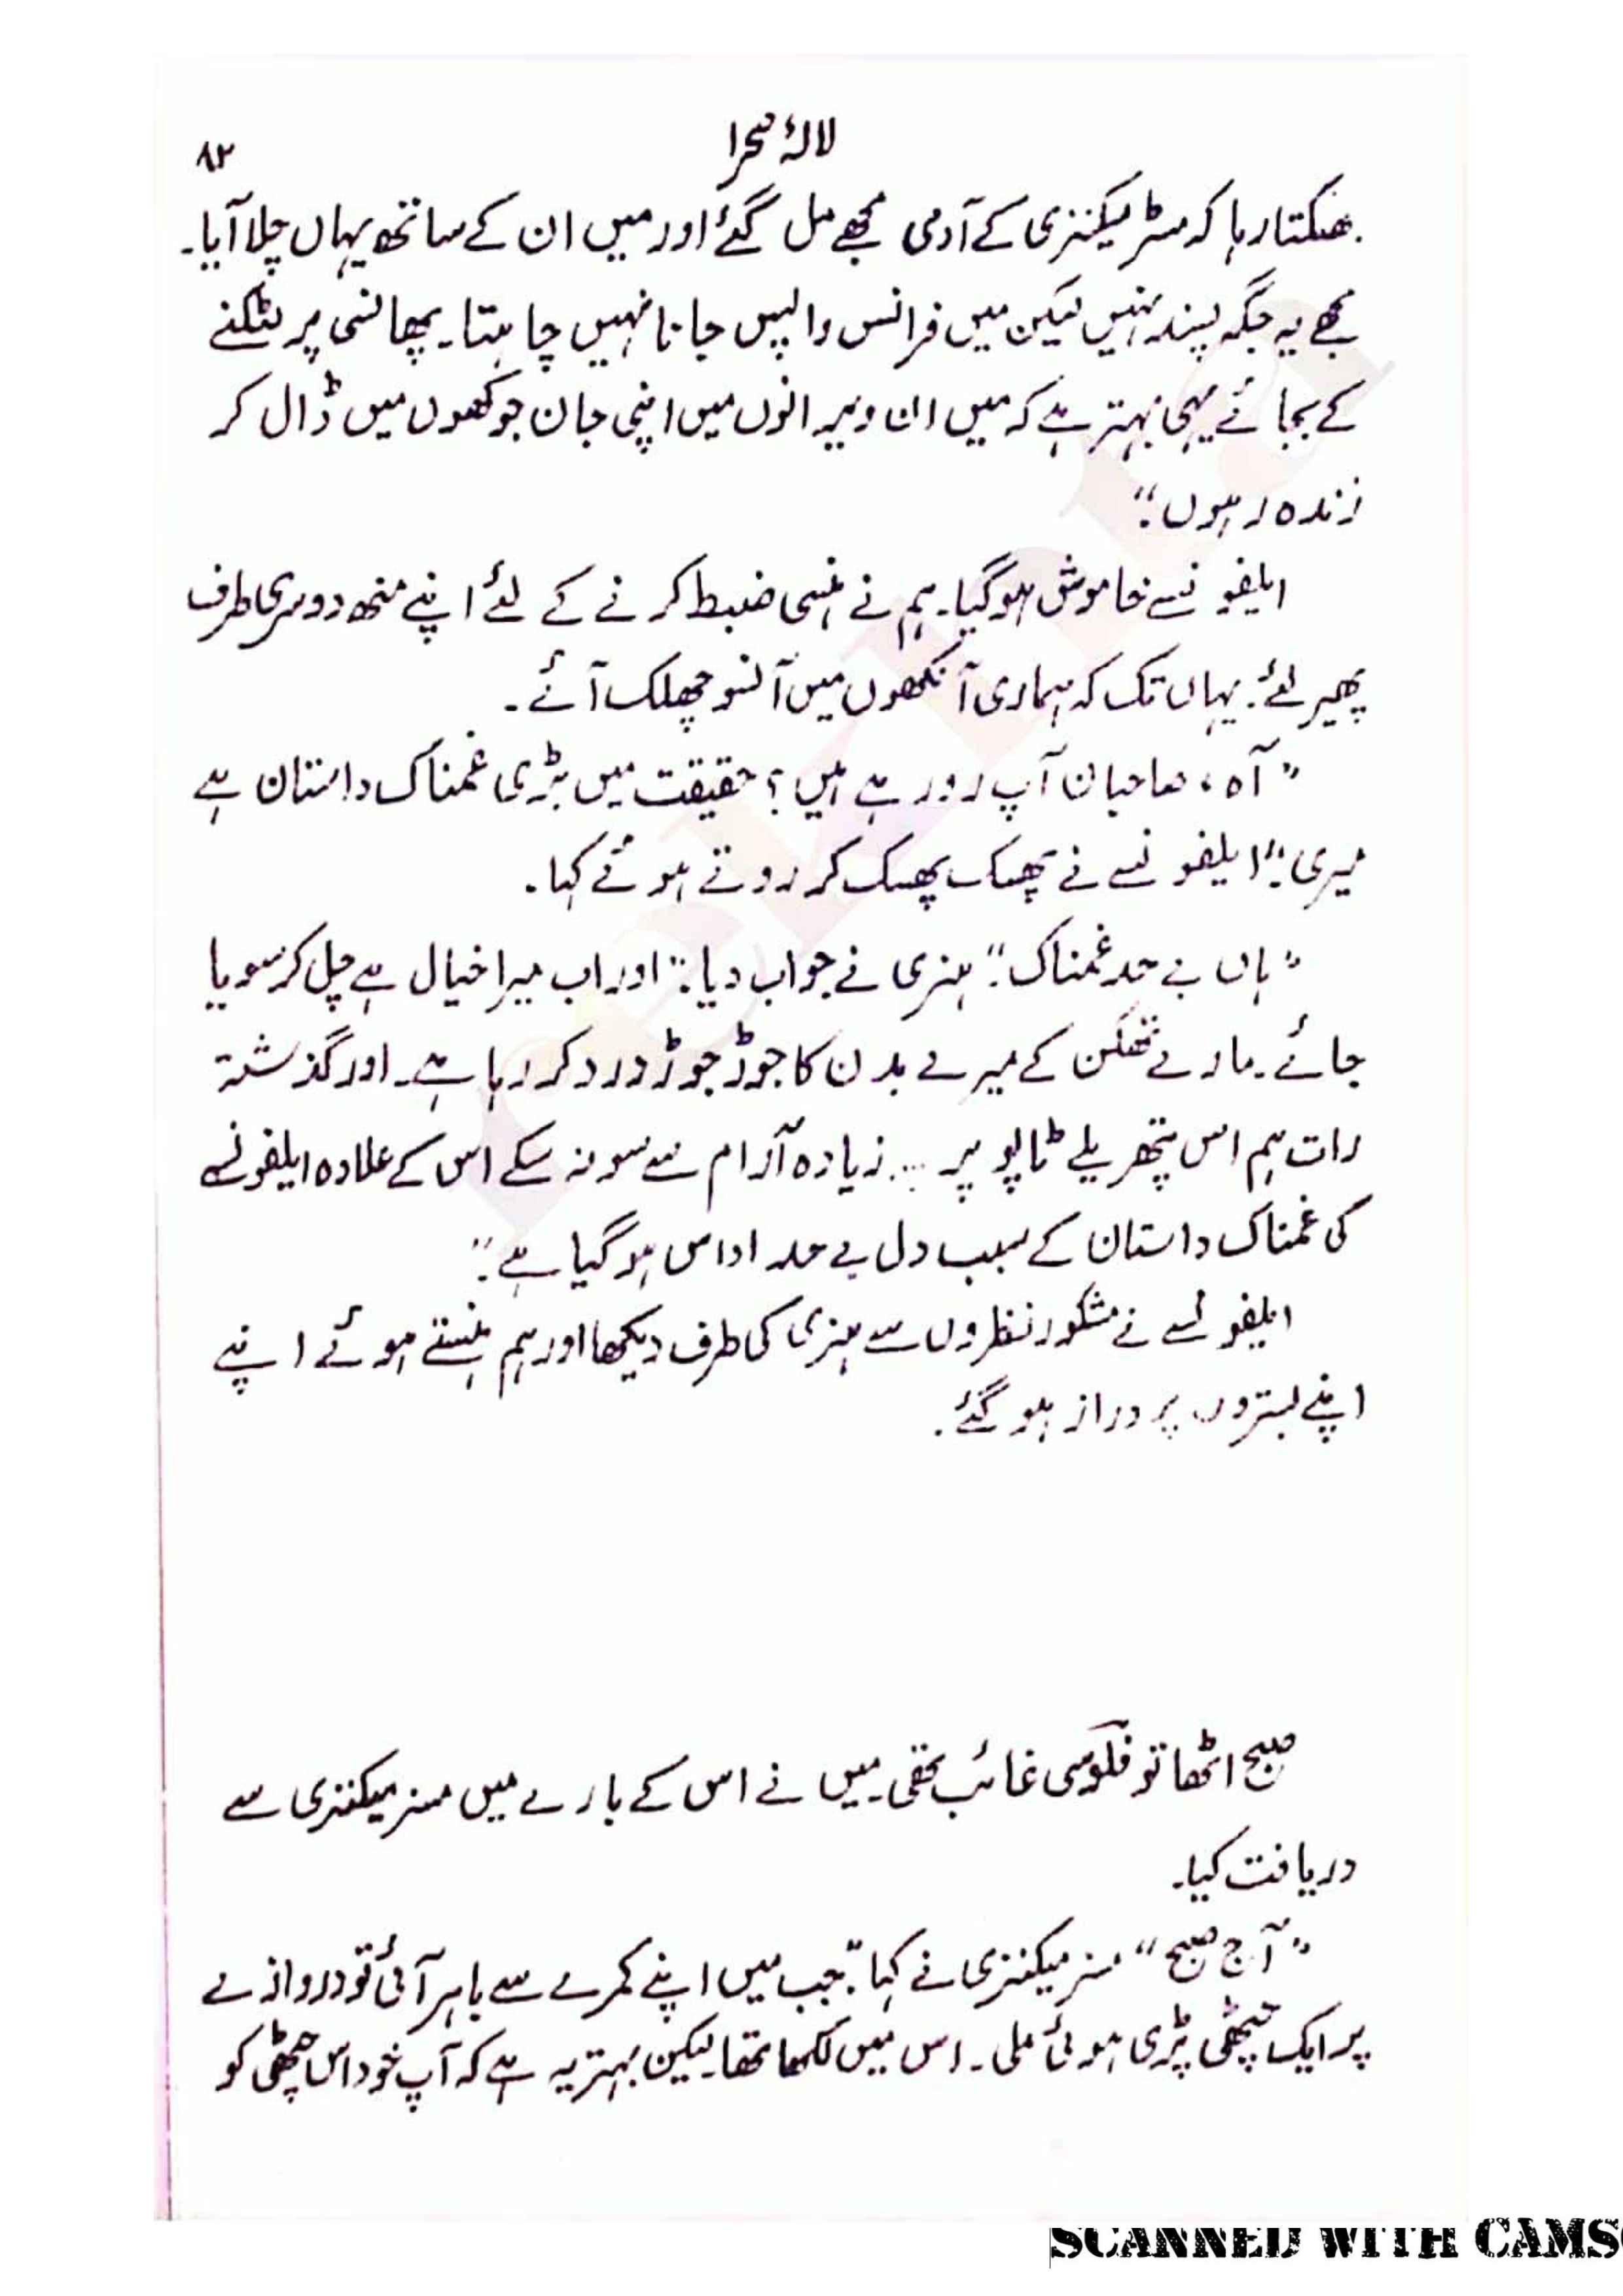 لالۂ صحرا
۸۲
بھٹکتا رہا کہ مسٹر میکنزی کے آدمی مجھے مل گئے اور میں ان کے ساتھ یہاں چلا آیا۔
مجھے یہ جگہ پسند نہیں لیکن میں فرانس واپس جانا نہیں چاہتا۔ پھانسی پر لٹکنے
کے بجائے یہی بہتر ہے کہ میں ان ویرانوں میں اپنی جان جوکھوں میں ڈال کر
زندہ رہوں۔“
ایلفونسے خاموش ہو گیا۔ ہم نے ہنسی ضبط کرنے کے لئے اپنے منھ دوسری طرف
پھیر لئے۔ یہاں تک کہ ہماری آنکھوں میں آنسو چھلک آئے۔
”آہ، صاحبان آپ رو رہے ہیں؟ حقیقت میں بڑی غمناک داستان ہے
میری۔“ ایلفونسے نے پھپک پھپک کر روتے ہوئے کہا۔
”ہاں بے حد غمناک۔“ ہنری نے جواب دیا۔ ”اور اب میرا خیال ہے چل کر سویا
جائے۔ مارے تھکن کے میرے بدن کا جوڑ جوڑ درد کر رہا ہے۔ اور گذشتہ
رات ہم اس پتھریلے ٹاپو پر ... زیادہ آرام سے سو نہ سکے اس کے علاوہ ایلفونسے
کی غمناک داستان کے سبب دل بے حد اداس ہو گیا ہے۔“
ایلفونسے نے مشکور نظروں سے ہنری کی طرف دیکھا اور ہم ہنستے ہوئے اپنے
اپنے بستروں پر دراز ہو گئے۔
صبح اٹھا تو فلوسی غائب تھی۔ میں نے اس کے بارے میں مسز میکنزی سے
دریافت کیا۔
”آج صبح“ مسز میکنزی نے کہا۔ ”جب میں اپنے کمرے سے باہر آئی تو دروازے
پر ایک چٹھی پڑی ہوئی ملی۔ اس میں لکھا تھا۔ لیکن بہتر یہ ہے کہ آپ خود اس چٹھی کو
SCANNED WITH CAMS